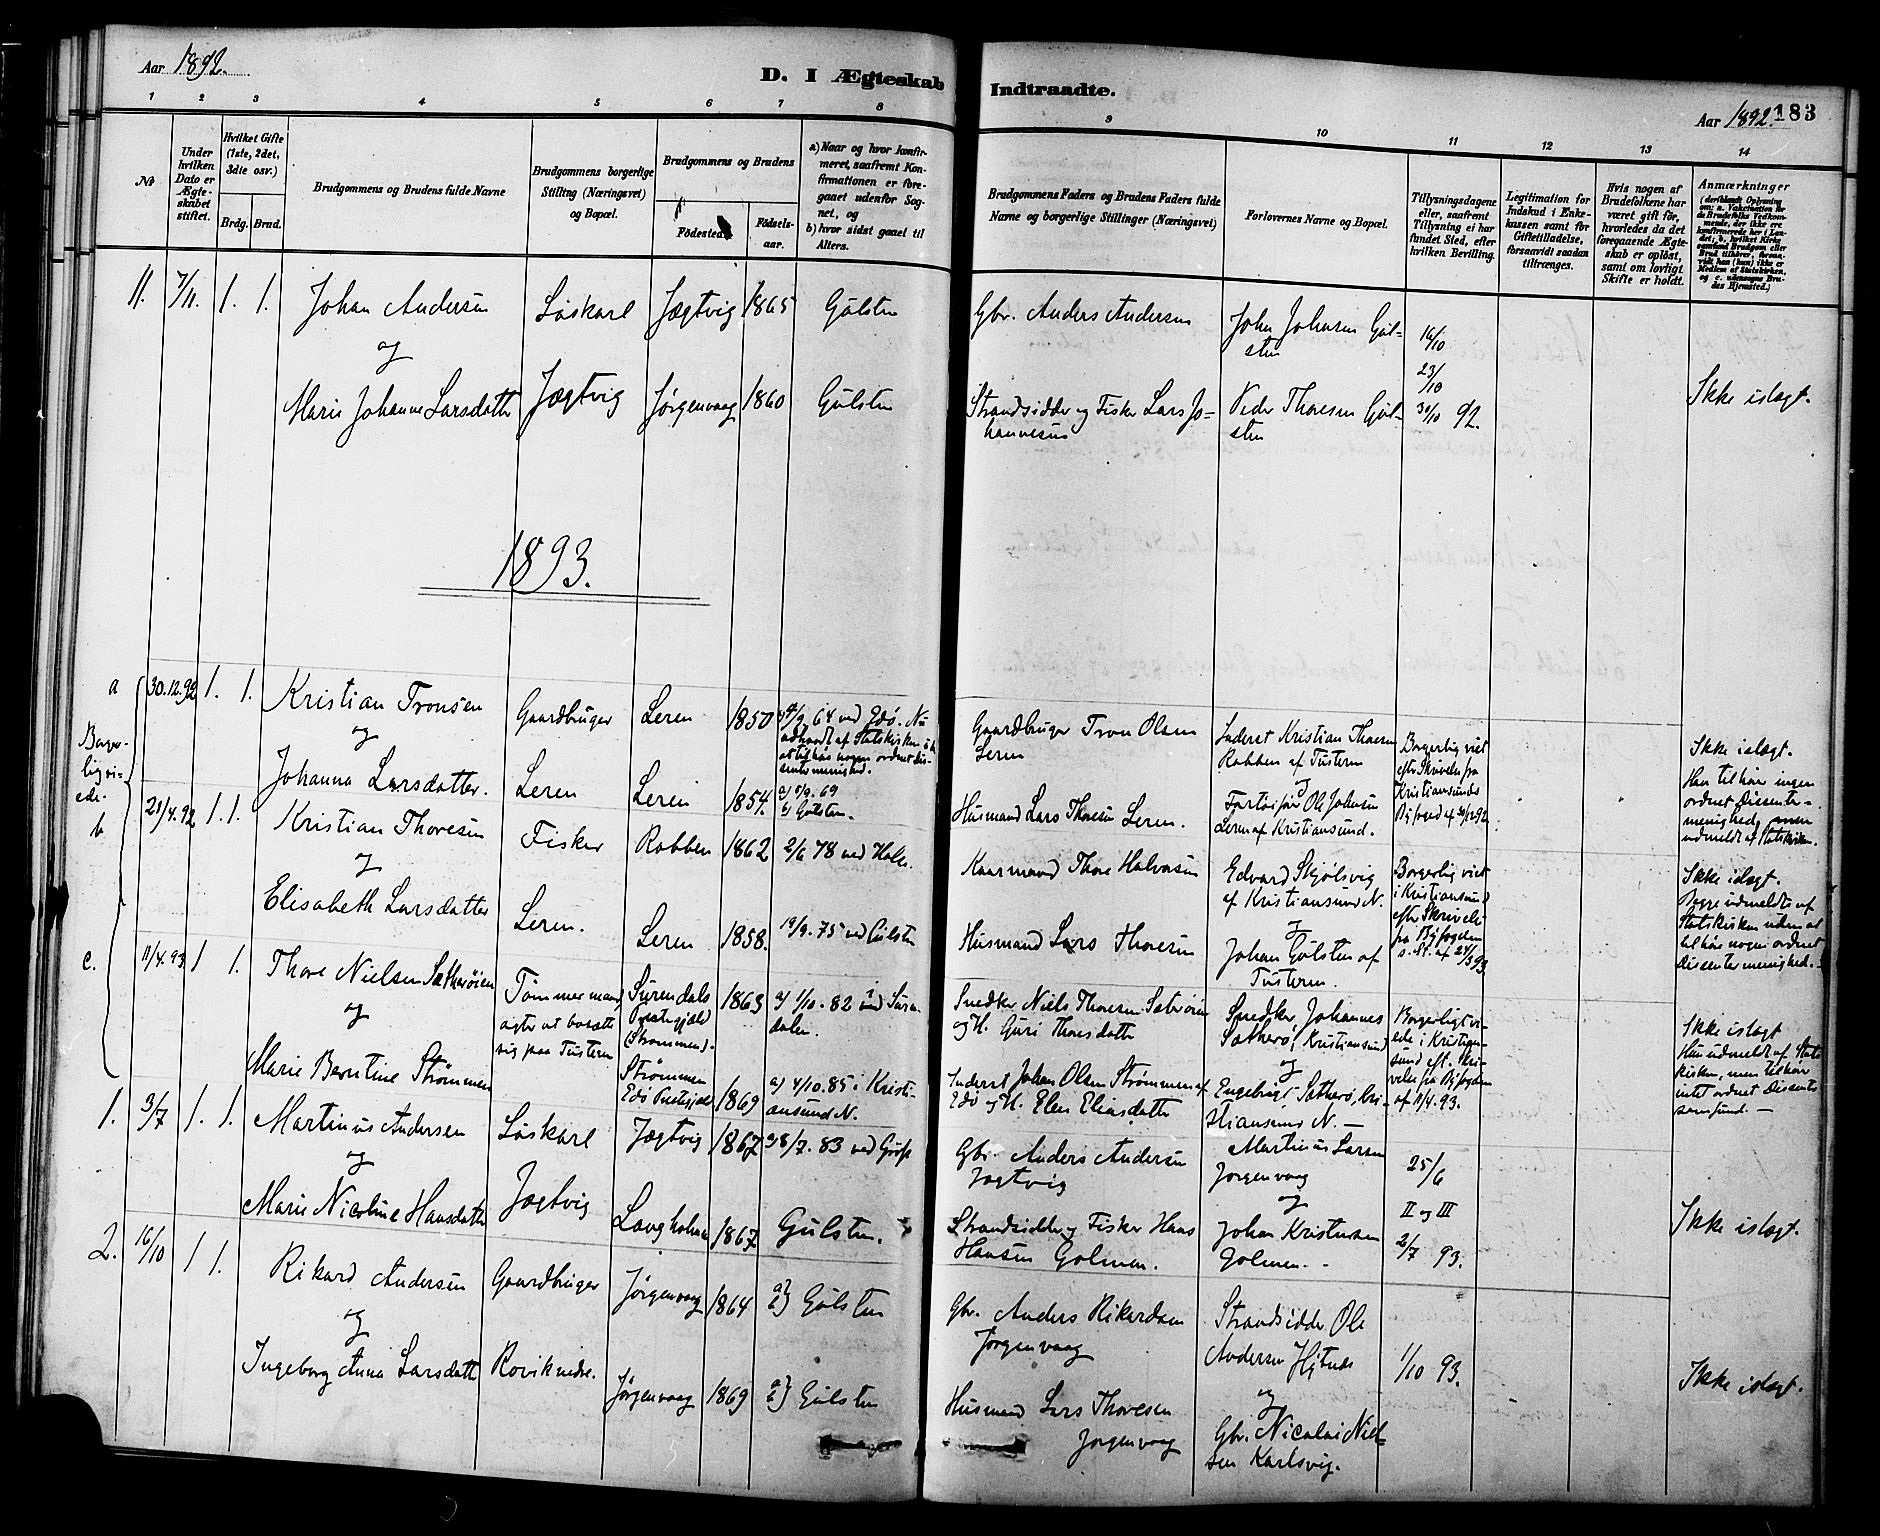 Aar 1892.
D. I Ægteskab Indtraadte.
Aar 1892. 183
1 2 3 4 5 6 7 8 9 10 11 12 13 14
No
Under hvilken Dato er Ægteskabet stiftet.
Hvilket Gifte (1ste, 2det, 3die osv.)
Brdg. Brud.
Brudgommens og Brudens fulde Navne
Brudgommens borgerlige Stilling (Næringsvei) og Bopæl.
Brudgommens og Brudens
Födested.
Födselsaar.
a) Naar og hvor konfirmeret, saafremt Konfirmationen er foregaaet udenfor Sognet, og
b) hvor sidst gaaet til Alters.
Brudgommens Faders og Brudens Faders fulde Navne og borgerlige Stillinger (Næringsvei)
Forlovernes Navne og Bopæl.
Tillysningsdagene eller, saafremt Tillysning ei har fundet Sted, efter hvilken Bevilling.
Legitimation for Indskud i Enkekassen samt for Giftetilladelse, forsaavidt saadan tiltrænges.
Hvis nogen af Brudefolkene har været gift før, hvorledes da det foregaaende Ægteskab er opløst, samt om lovligt Skifte er holdt.
Anmærkninger
11. 7/11. 1. 1. Johan Andersen Löskarl Jægtvig 1865 Gulsten
og
Marie Johanne Larsdatter Jægtvig Jørgenvaag 1860 Gulsten
Gbr. Anders Andersen
John Johnsen Gulsten
16/10
23/10
30/10 92.
Strandsidder og Fisker Lars Johannesen
Peder Thoresen Gulsten
Ikke islægt.
1893.
Borgerlig viede.
a 30.12.92 1. 1. Kristian Tronsen Gaardbruger Leren 1850
og
Johanna Larsdatter. Leren Leren 1854.
a) 5/9. 69
b) Gulsten.
Gaardbruger Tron Olsen Leren
Inderst Kristian Thoresen Robben af Tusteren
og
Husmand Lars Thoresen Leren.
Ole Johnsen Leren af Kristiansund.
Borgerlig viet efter Skrivelse fra Kristiansunds Byfoged af 30/12 92.
Ikke islægt.
Han tilhører ingen ordnet Dissentermenighed, men udmeldt af Statskirken.
b 1. 1. Kristian Thoresen Fisker Robben 1862 2/6 78 ved Halse.
og
Elisabeth Larsdatter Leren. Leren 1858. 19/9. 75 ved Gulsten
Kaarmand Thore Halvorsen
Edvard Skjølsvig af Kristiansund N.
og
Husmand Lars Thoresen
Johan Gulsten af Tusteren.
Borgerlig viet i Kristiansund efter Skrivelse fra Byfogden
Ikke islægt.
Begge udmeldt af Statskirken uden at tilhøre nogen ordnet Dissentermenighed.
c. 11/4. 93 1 1. Thore Nielsen Sætherøien
og
Marie Berntine Strømmen
Tømmermand, agter at bosætte sig paa Tusteren
Surendals Prestegjeld (Strømmen).
1863 a) 1/10. 82 i Surendalen.
Strømmen Edø Prestegjeld 1869 a) 4/10. 85 i Kristiansund N.
Snedker Niels Thoresen Sæterøien og H. Guri Thoresdatter
Snedker Johannes Sætherø, Kristiansund
og
Inderst Johan Olsen Strømmen af Edø og H. Elen Eliasdatter
Engebrigt Sætherø, Kristiansund N. —
Borgerligt viede i Kristiansund eft. Skrivelse fra Byfogden af 11/4. 93.
Ikke islægt
Hun udmeldt af Statskirken, men tilhører intet ordnet Dissentersamfund. —
1. 3/7 1. 1. Martinus Andersen Löskarl Jægtvig 1867
og
Marie Nicoline Hansdatter Jægtvig Langholmen 1867 Gulsten.
Gbr. Anders Andersen Jægtvig
Martinus Larsen Jørgenvaag
og
25/6
II og III
2/7 93.
Strandsidder og Fisker Hans Hansen Golmen.
Johan Kristensen Golmen.
Ikke islægt.
2. 16/10 1 1. Rikard Andersen Gaardbruger Jørgenvaag 1864 a) b) Gulsten
og
Ingeborg Anna Larsdatter Rovik nedre. Jørgenvaag 1869 a) b) Gulsten
Gbr. Anders Rikardsen Jørgenvaag
Strandsidder Ole Andersen Hjtnæs
og
1/10 93.
Husmand Lars Thoresen Jørgenvaag
Gbr. Nicolai Nielsen Karlsvig.
Ikke islægt.